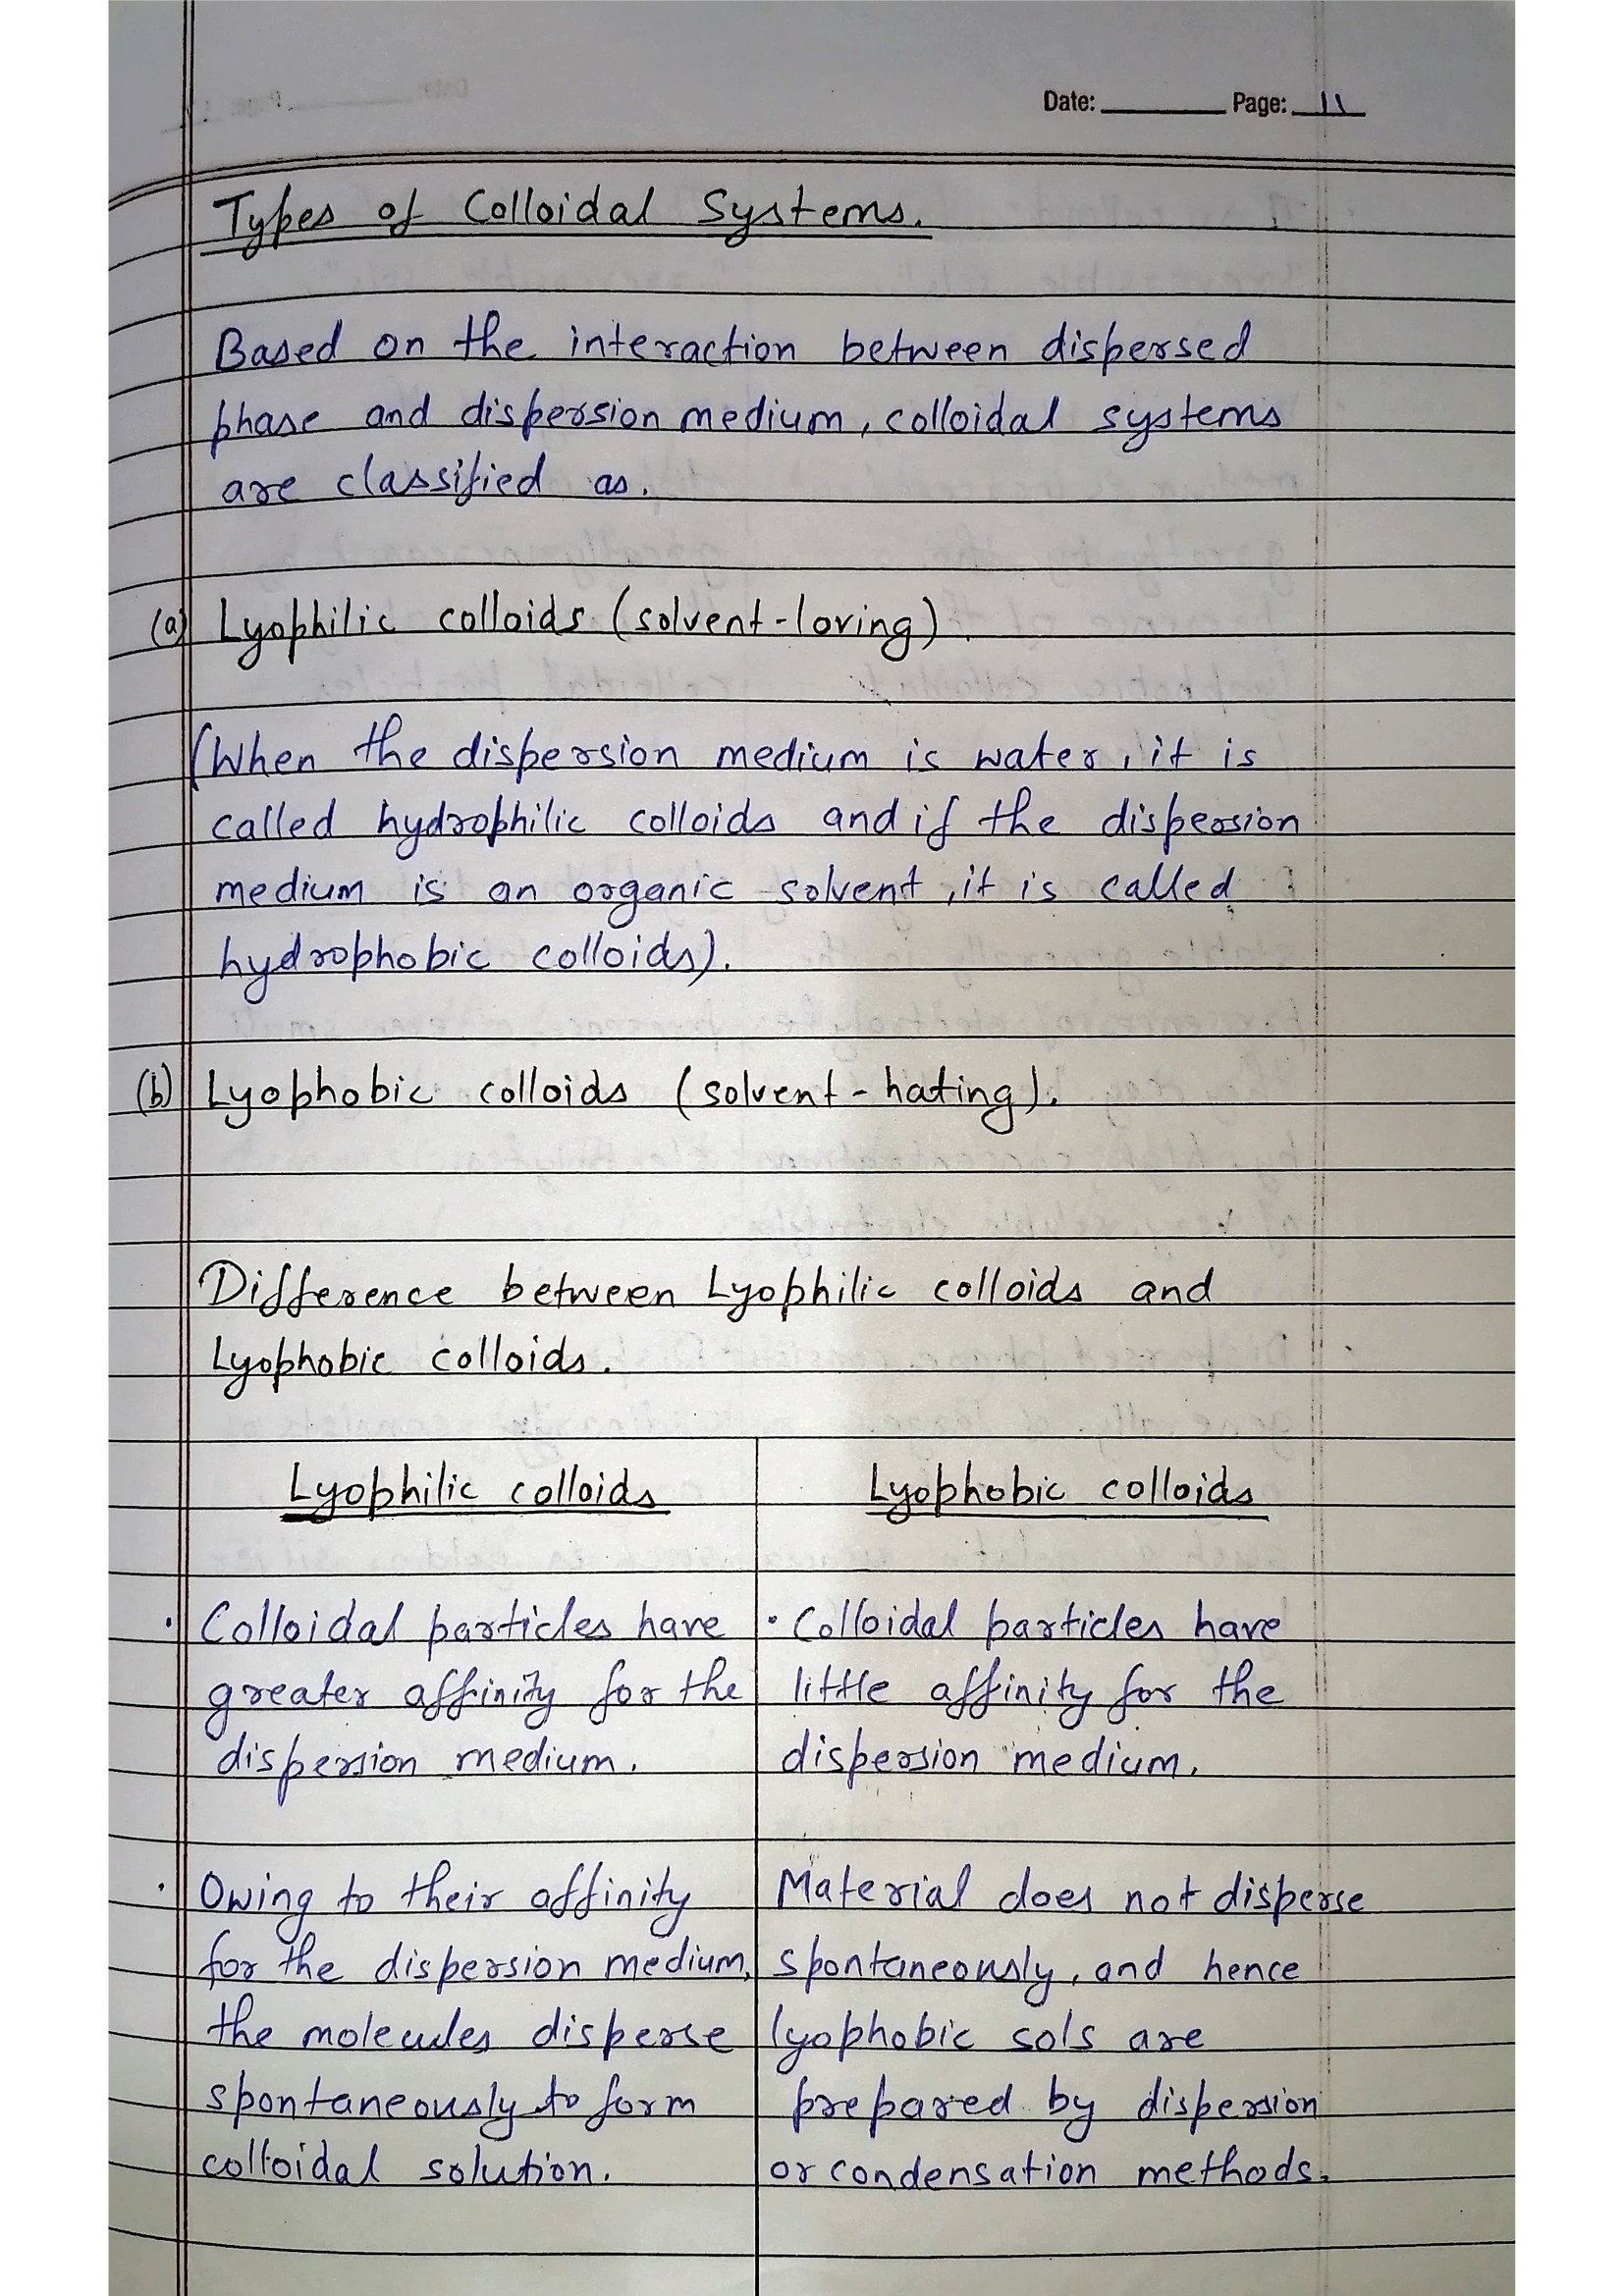 Date: Page: 11
Types of Colloidal Systems.
Based on the interaction between dispersed
phase and dispersion medium, colloidal systems
are classified as.
(a) Lyophilic colloids (solvent-loving).
(When the dispersion medium is water, it is
called hydrophilic colloids and if the dispersion
medium is an organic solvent, it is called
hydrophobic colloids).
(b) Lyophobic colloids (solvent-hating).
Difference between Lyophilic colloids and
Lyophobic colloids.
Lyophilic colloids
• Colloidal particles have
greater affinity for the
dispersion medium.
• Owing to their affinity
for the dispersion medium,
the molecules disperse
spontaneously to form
colloidal solution.
Lyophobic colloids
• Colloidal particles have
little affinity for the
dispersion medium.
Material does not disperse
spontaneously, and hence
lyophobic sols are
prepared by dispersion
or condensation methods.